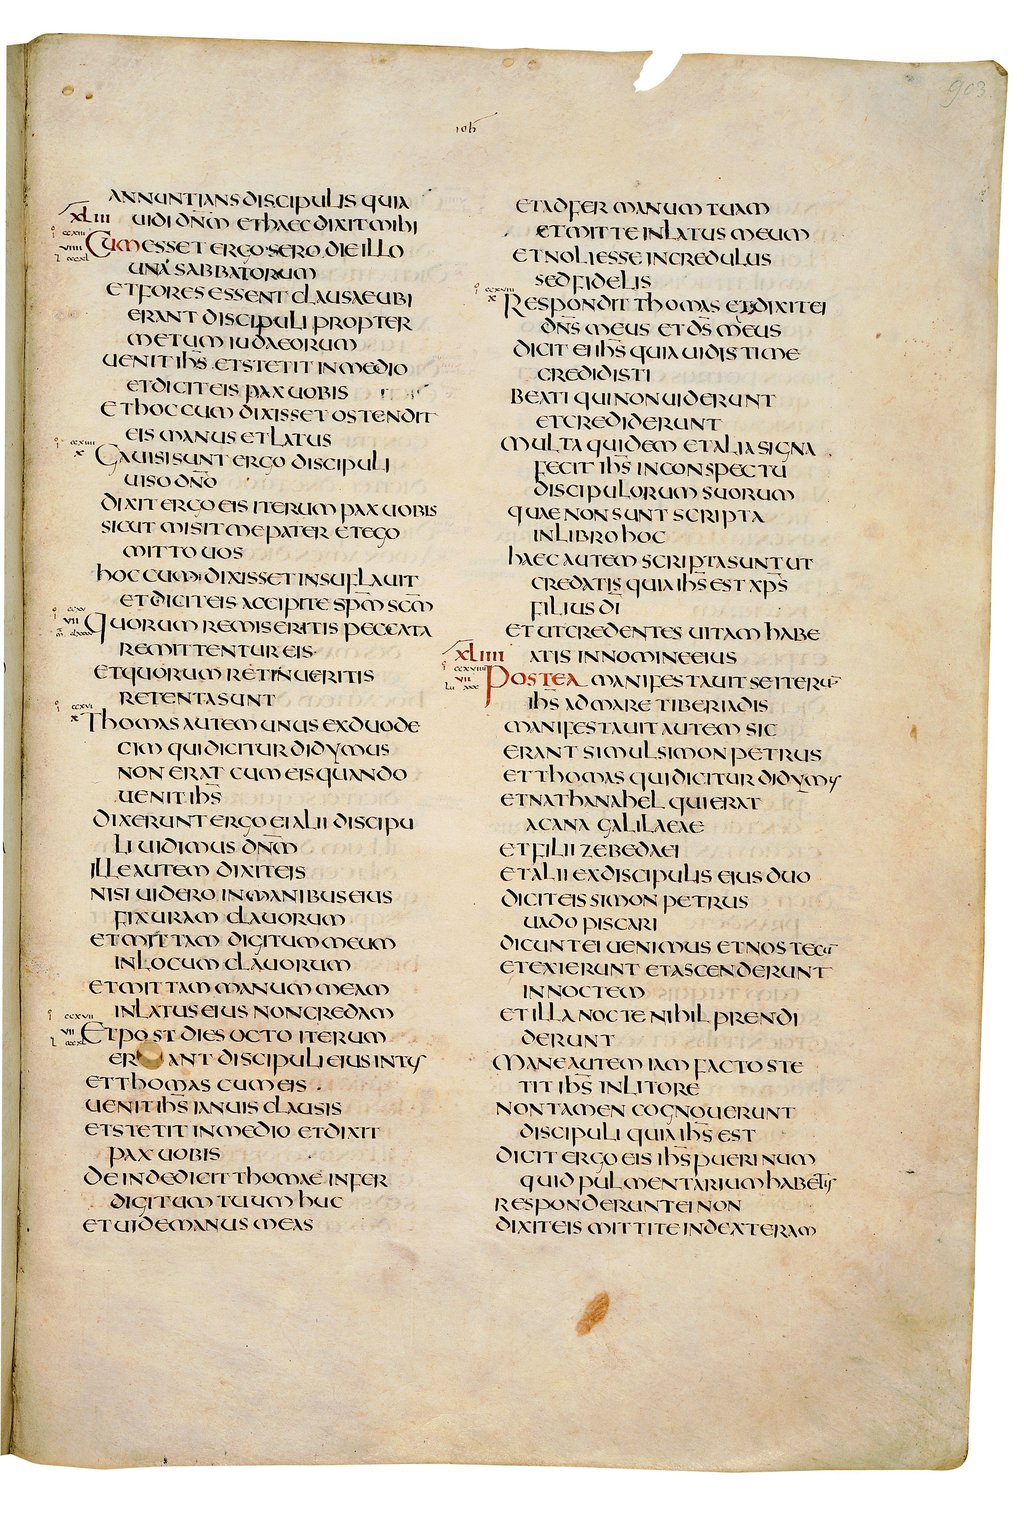 903
ioh
ANNUNTIANS DISCIPULIS QUIA
XLIII UIDI DN̄M ET HAEC DIXIT MIHI
CUM ESSET ERGO SERO DIE ILLO
UNA SABBATORUM
ET FORES ESSENT CLAUSAE UBI
ERANT DISCIPULI PROPTER
METUM IUDAEORUM
UENIT IHS̄ ET STETIT IN MEDIO
ET DICIT EIS PAX UOBIS
ET HOC CUM DIXISSET OSTENDIT
EIS MANUS ET LATUS
GAUISI SUNT ERGO DISCIPULI
UISO DN̄O
DIXIT ERGO EIS ITERUM PAX UOBIS
SICUT MISIT ME PATER ET EGO
MITTO UOS
HOC CUM DIXISSET INSUFLAUIT
ET DICIT EIS ACCIPITE SPM̄ SCM̄
QUORUM REMISERITIS PECCATA
REMITTENTUR EIS
ET QUORUM RETINUERITIS
RETENTA SUNT
THOMAS AUTEM UNUS EX DUODE
CIM QUI DICITUR DIDYMUS
NON ERAT CUM EIS QUANDO
UENIT IHS̄
DIXERUNT ERGO EI ALII DISCIPU
LI UIDIMUS DN̄M
ILLE AUTEM DIXIT EIS
NISI UIDERO IN MANIBUS EIUS
FIXURAM CLAUORUM
ET MITTAM DIGITUM MEUM
IN LOCUM CLAUORUM
ET MITTAM MANUM MEAM
IN LATUS EIUS NON CREDAM
ET POST DIES OCTO ITERUM
ERANT DISCIPULI EIUS INTUS
ET THOMAS CUM EIS
UENIT IHS̄ IANUIS CLAUSIS
ET STETIT IN MEDIO ET DIXIT
PAX UOBIS
DEINDE DICIT THOMAE INFER
DIGITUM TUUM HUC
ET UIDE MANUS MEAS
ET ADFER MANUM TUAM
ET MITTE IN LATUS MEUM
ET NOLI ESSE INCREDULUS
SED FIDELIS
RESPONDIT THOMAS ET DIXIT EI
DN̄S MEUS ET DS̄ MEUS
DICIT EI IHS̄ QUIA UIDISTI ME
CREDIDISTI
BEATI QUI NON UIDERUNT
ET CREDIDERUNT
MULTA QUIDEM ET ALIA SIGNA
FECIT IHS̄ IN CONSPECTU
DISCIPULORUM SUORUM
QUAE NON SUNT SCRIPTA
IN LIBRO HOC
HAEC AUTEM SCRIPTA SUNT UT
CREDATIS QUIA IHS̄ EST XPS̄
FILIUS DI̅
ET UT CREDENTES UITAM HABE
XLIIII ATIS IN NOMINE EIUS
POSTEA MANIFESTAUIT SE ITERU̅
IHS̄ AD MARE TIBERIADIS
MANIFESTAUIT AUTEM SIC
ERANT SIMUL SIMON PETRUS
ET THOMAS QUI DICITUR DIDYMUS
ET NATHANAHEL QUI ERAT
A CANA GALILAEAE
ET FILII ZEBEDAEI
ET ALII EX DISCIPULIS EIUS DUO
DICIT EIS SIMON PETRUS
UADO PISCARI
DICUNT EI UENIMUS ET NOS TECU̅
ET EXIERUNT ET ASCENDERUNT
IN NOCTEM
ET ILLA NOCTE NIHIL PRENDI
DERUNT
MANE AUTEM IAM FACTO STE
TIT IHS̄ IN LITORE
NON TAMEN COGNOUERUNT
DISCIPULI QUIA IHS̄ EST
DICIT ERGO EIS IHS̄ PUERI NUM
QUID PULMENTARIUM HABETIS
RESPONDERUNT EI NON
DIXIT EIS MITTITE IN DEXTERAM